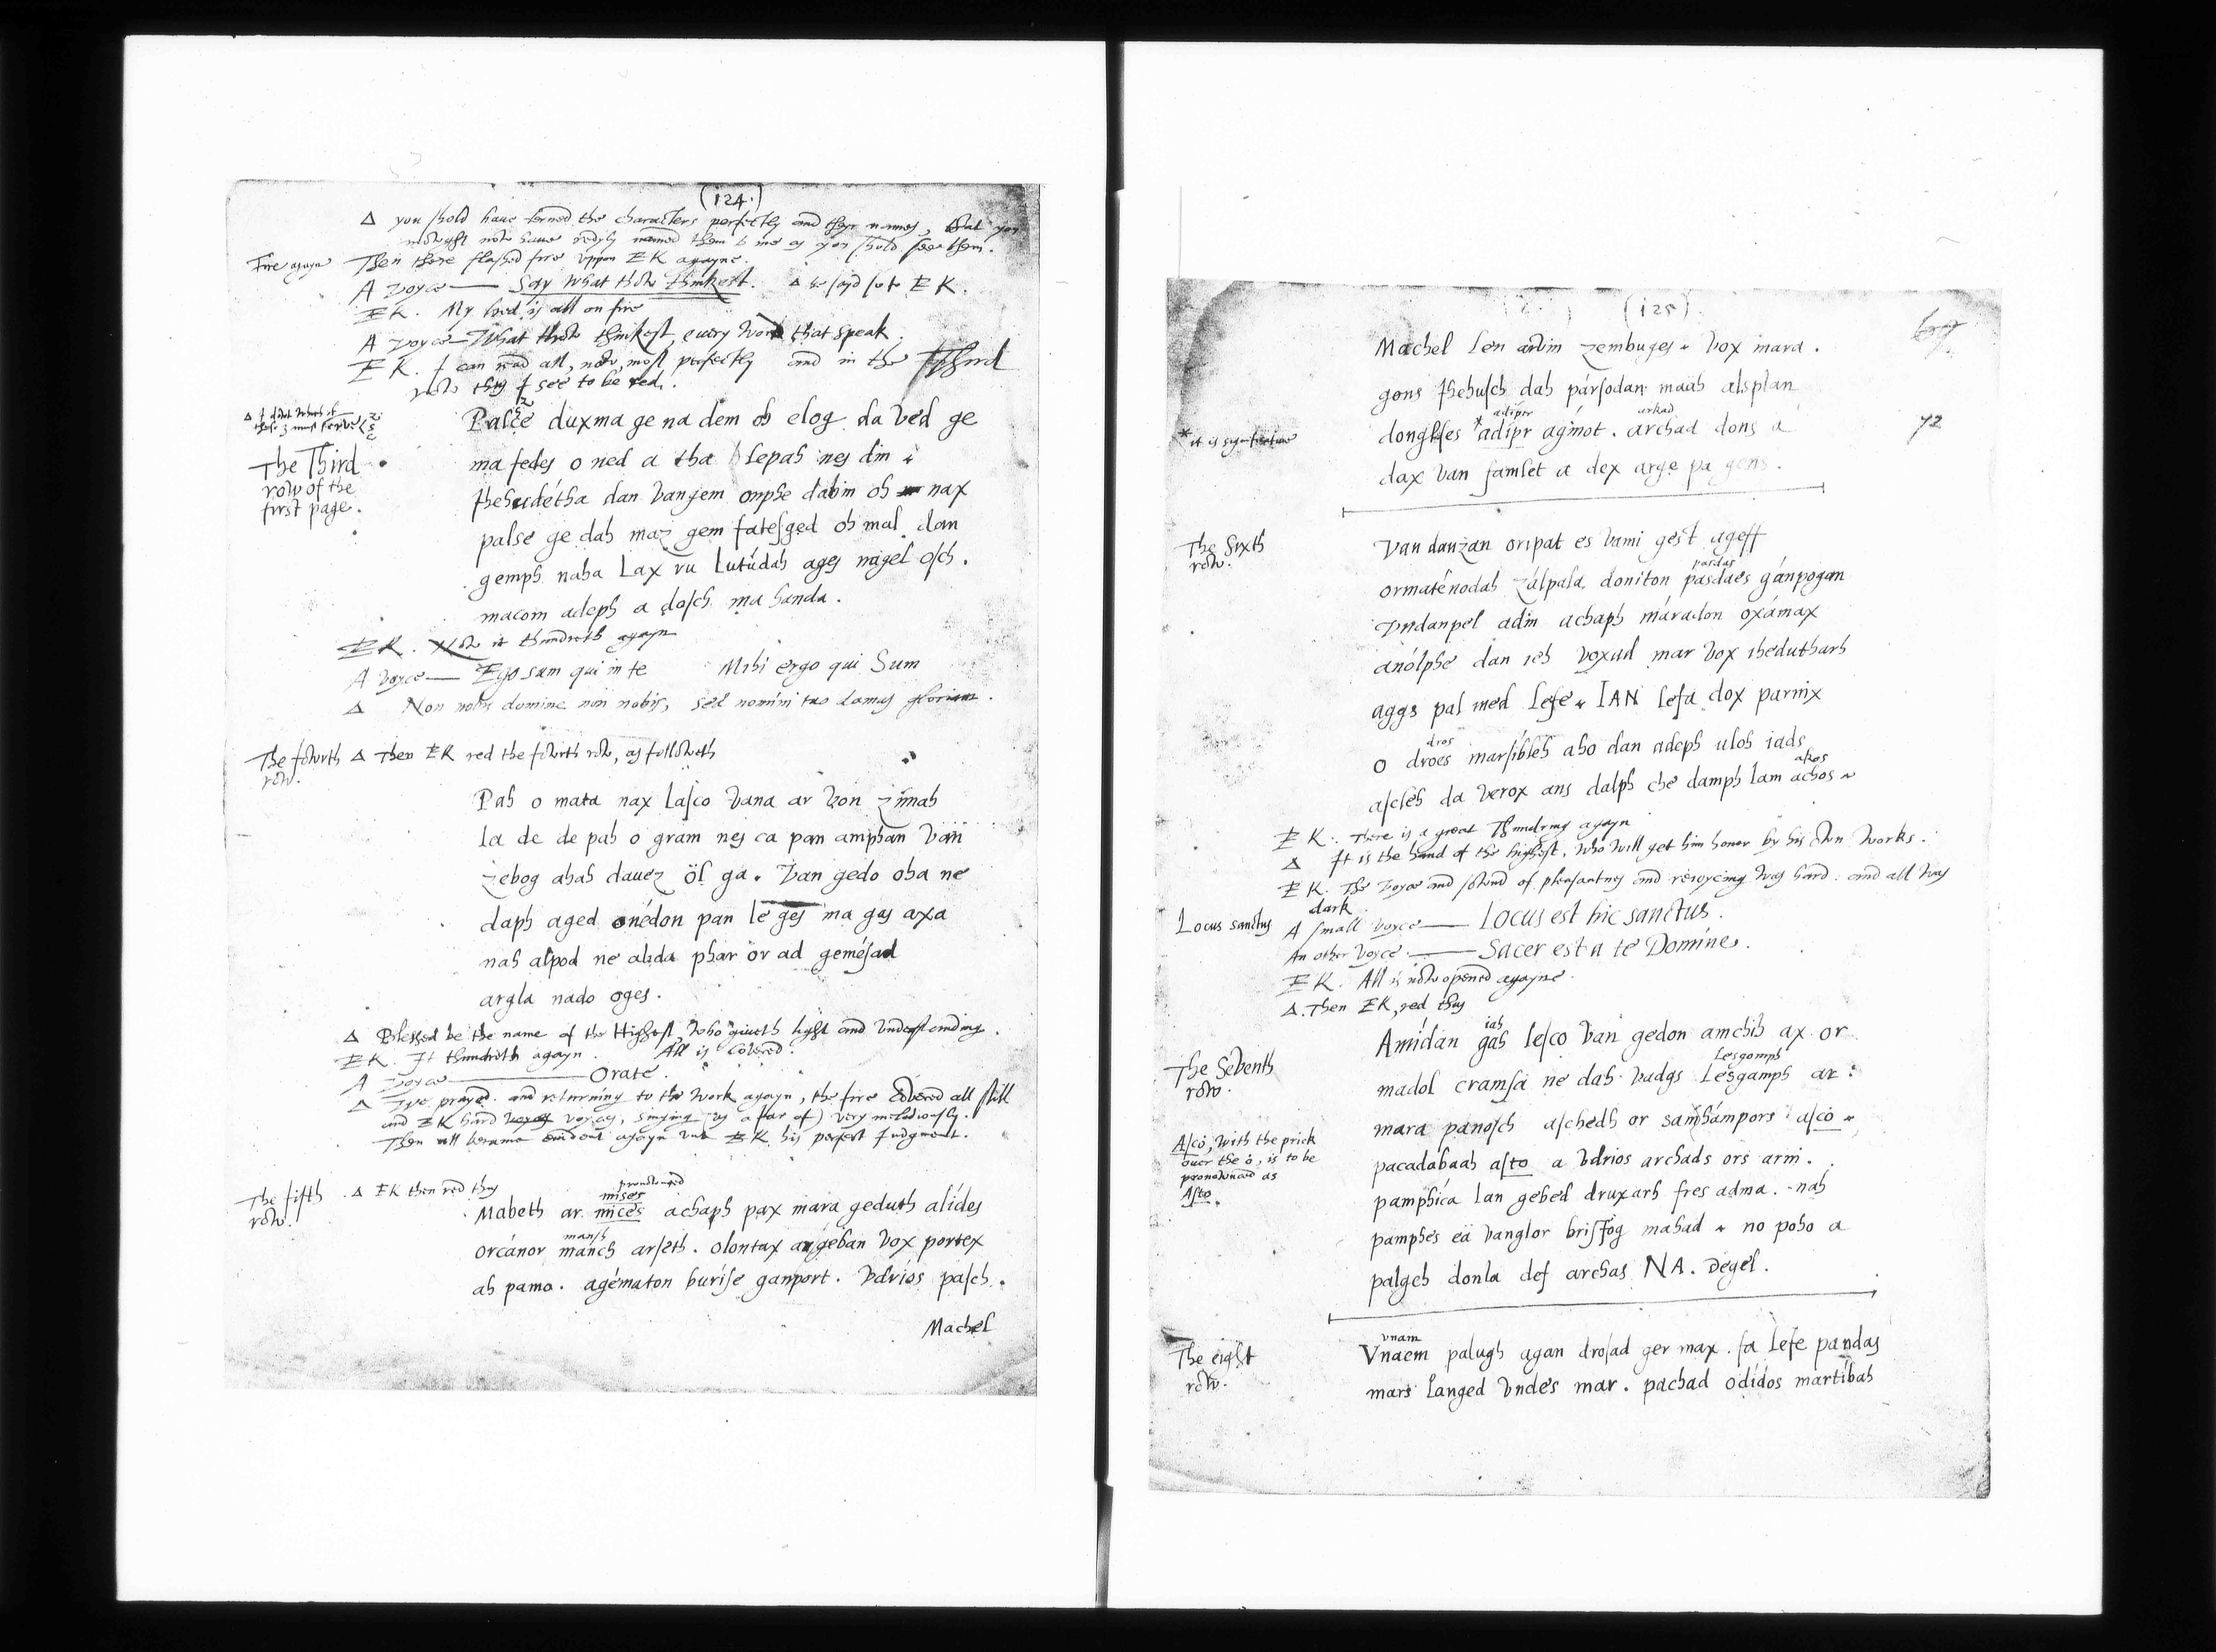 (124.)
Δ you shold have lerned the characters perfectly and theyr names, that you
mowght now haue redyly named them to me as you shold see them.
Fire agayn Then there flashed fire vppon EK agayne.
A voyce — Say what thow thinkest. Δ he sayd so to EK.
EK. My hed is all on fire
A voyce — What thow thinkest, euery word that speak.
EK. I can read all, now, most perfectly and in the Third
row thus I see to be red.
Palse duxma ge na dem oh elog da ved ge
The Third row of the first page.
ma fedes o ned a tha lepah nes din
Ihehudétha dan vangem onphe dabin oh nax
palse ge dah maz gem fatesged oh mal dan
gemph naha Lax ru lutúdah ages nagel osch.
macom adeph a dosch ma handa.
EK. Now it thundreth agayn
A voyce — Ego sum qui in te Mihi ergo qui Sum
Δ Non nobis domine non nobis, sed nomini tuo damus gloriam.
The fowrth row. Δ Then EK red the fowrth row, as followeth
Pah o mata nax lasco vana ar von zimah
la de de pah o gram nes ca pan amphan van
zebog ahah dauez öl ga. Van gedo oha ne
daph aged onédon pan le ges ma gas axa
nah alpod ne alida phar or ad gemésad
argla nado oges.
Δ Blessed be the name of the Highest, who giueth light and vnderstanding.
EK. It thundreth agayn. All is Covered.
A voyce — Orate.
Δ We prayed. and returning to the work agayn, the fire Covered all still
and EK hard voyces, singing (as a far of) very melodiously.
Then all became euident agayn vnto EK his perfect Judgment.
The fifth row. Δ EK then red thus
pronownced
mises
Mabeth ar. mices achaph pax mara geduth alídes
mansh
orcánor manch arseth. olontax argéban vox portex
ah pamo. agématon buríse ganport. vdríos pasch.
Machel
(125)
Machel len arvin zembuges ~ vox mara.
gons Ihehusch dah pársodan maäh alsplan
adiper arkad
* it is signifcative
donglses *adípr agínot. archad dons a
72
dax van famlet a dex arge pa gens.
The Sixth row.
Van danzan oripat es vami gest ageff
pasdas
ormaténodah zálpala doniton pasdaes gánpogan
Vndanpel adin achaph máradon oxámax
anólphe dan ieh voxad mar vox ihedutharh
aggs pal med lefe ~ IAN lefa dox parnix
dros
o droes marsibleh aho dan adeph uloh iads
akos
ascleh da verox ans dalph che damph lam achos ~
EK. There is a great Thundring agayn
Δ It is the hand of the highest, who will get him honor by his own works.
EK. The voyce and sownd of pleasantnes and reioycing was hard. and all was
dark.
Locus sanctus A small voyce — Locus est hic sanctus.
An other voyce — Sacer est a te Domine.
EK. All is now opened agayne.
Δ. Then EK, red thus
iah
The Seventh row.
Amídan gah lesco van gedon amchih ax or
Lesgomph
madol cramsa ne dah vadgs Lesgamph ar:
mara panosch aschedh or samhámpors ascó ~
Ascó, with the prick
ouer the ó, is to be
pronownced as
Asto.
pacadabaah asto a vdrios archads ors arni.
pamphica lan gebed druxarh fres adma. nah
pamphes eä vanglor brisfog mahad ~ no poho a
palgeh donla def archas NA. Degel.
vnam
The eight row.
Vnaem palugh agan drosad ger max. fa lefe pandas
mars langed vndes mar. pachad odídos martíbah